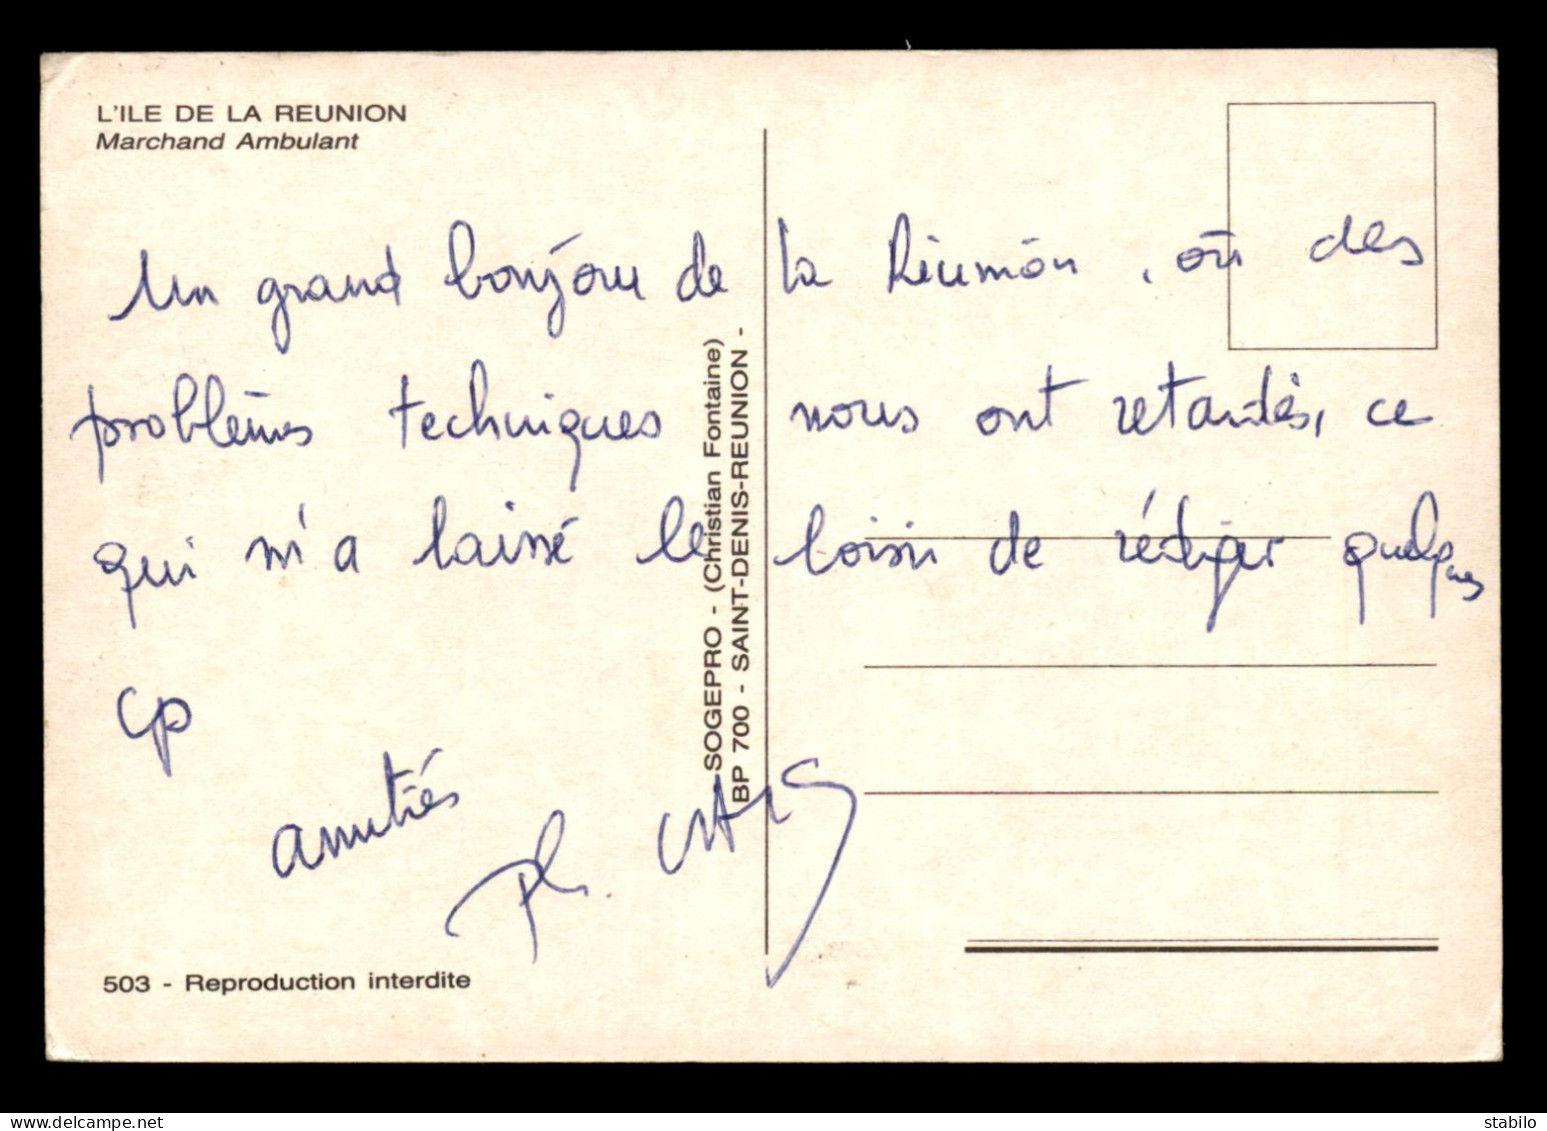 L'ILE DE LA REUNION
Marchand Ambulant
Un grand bonjour de la Réunion, où des
problèmes techniques nous ont retardés, ce
qui m'a laissé le loisir de rédiger quelques
cp
amitiés
Ph.
SOGEPRO - (Christian Fontaine)
BP 700 - SAINT-DENIS-REUNION -
503 - Reproduction interdite
delcampe.net
stabilo